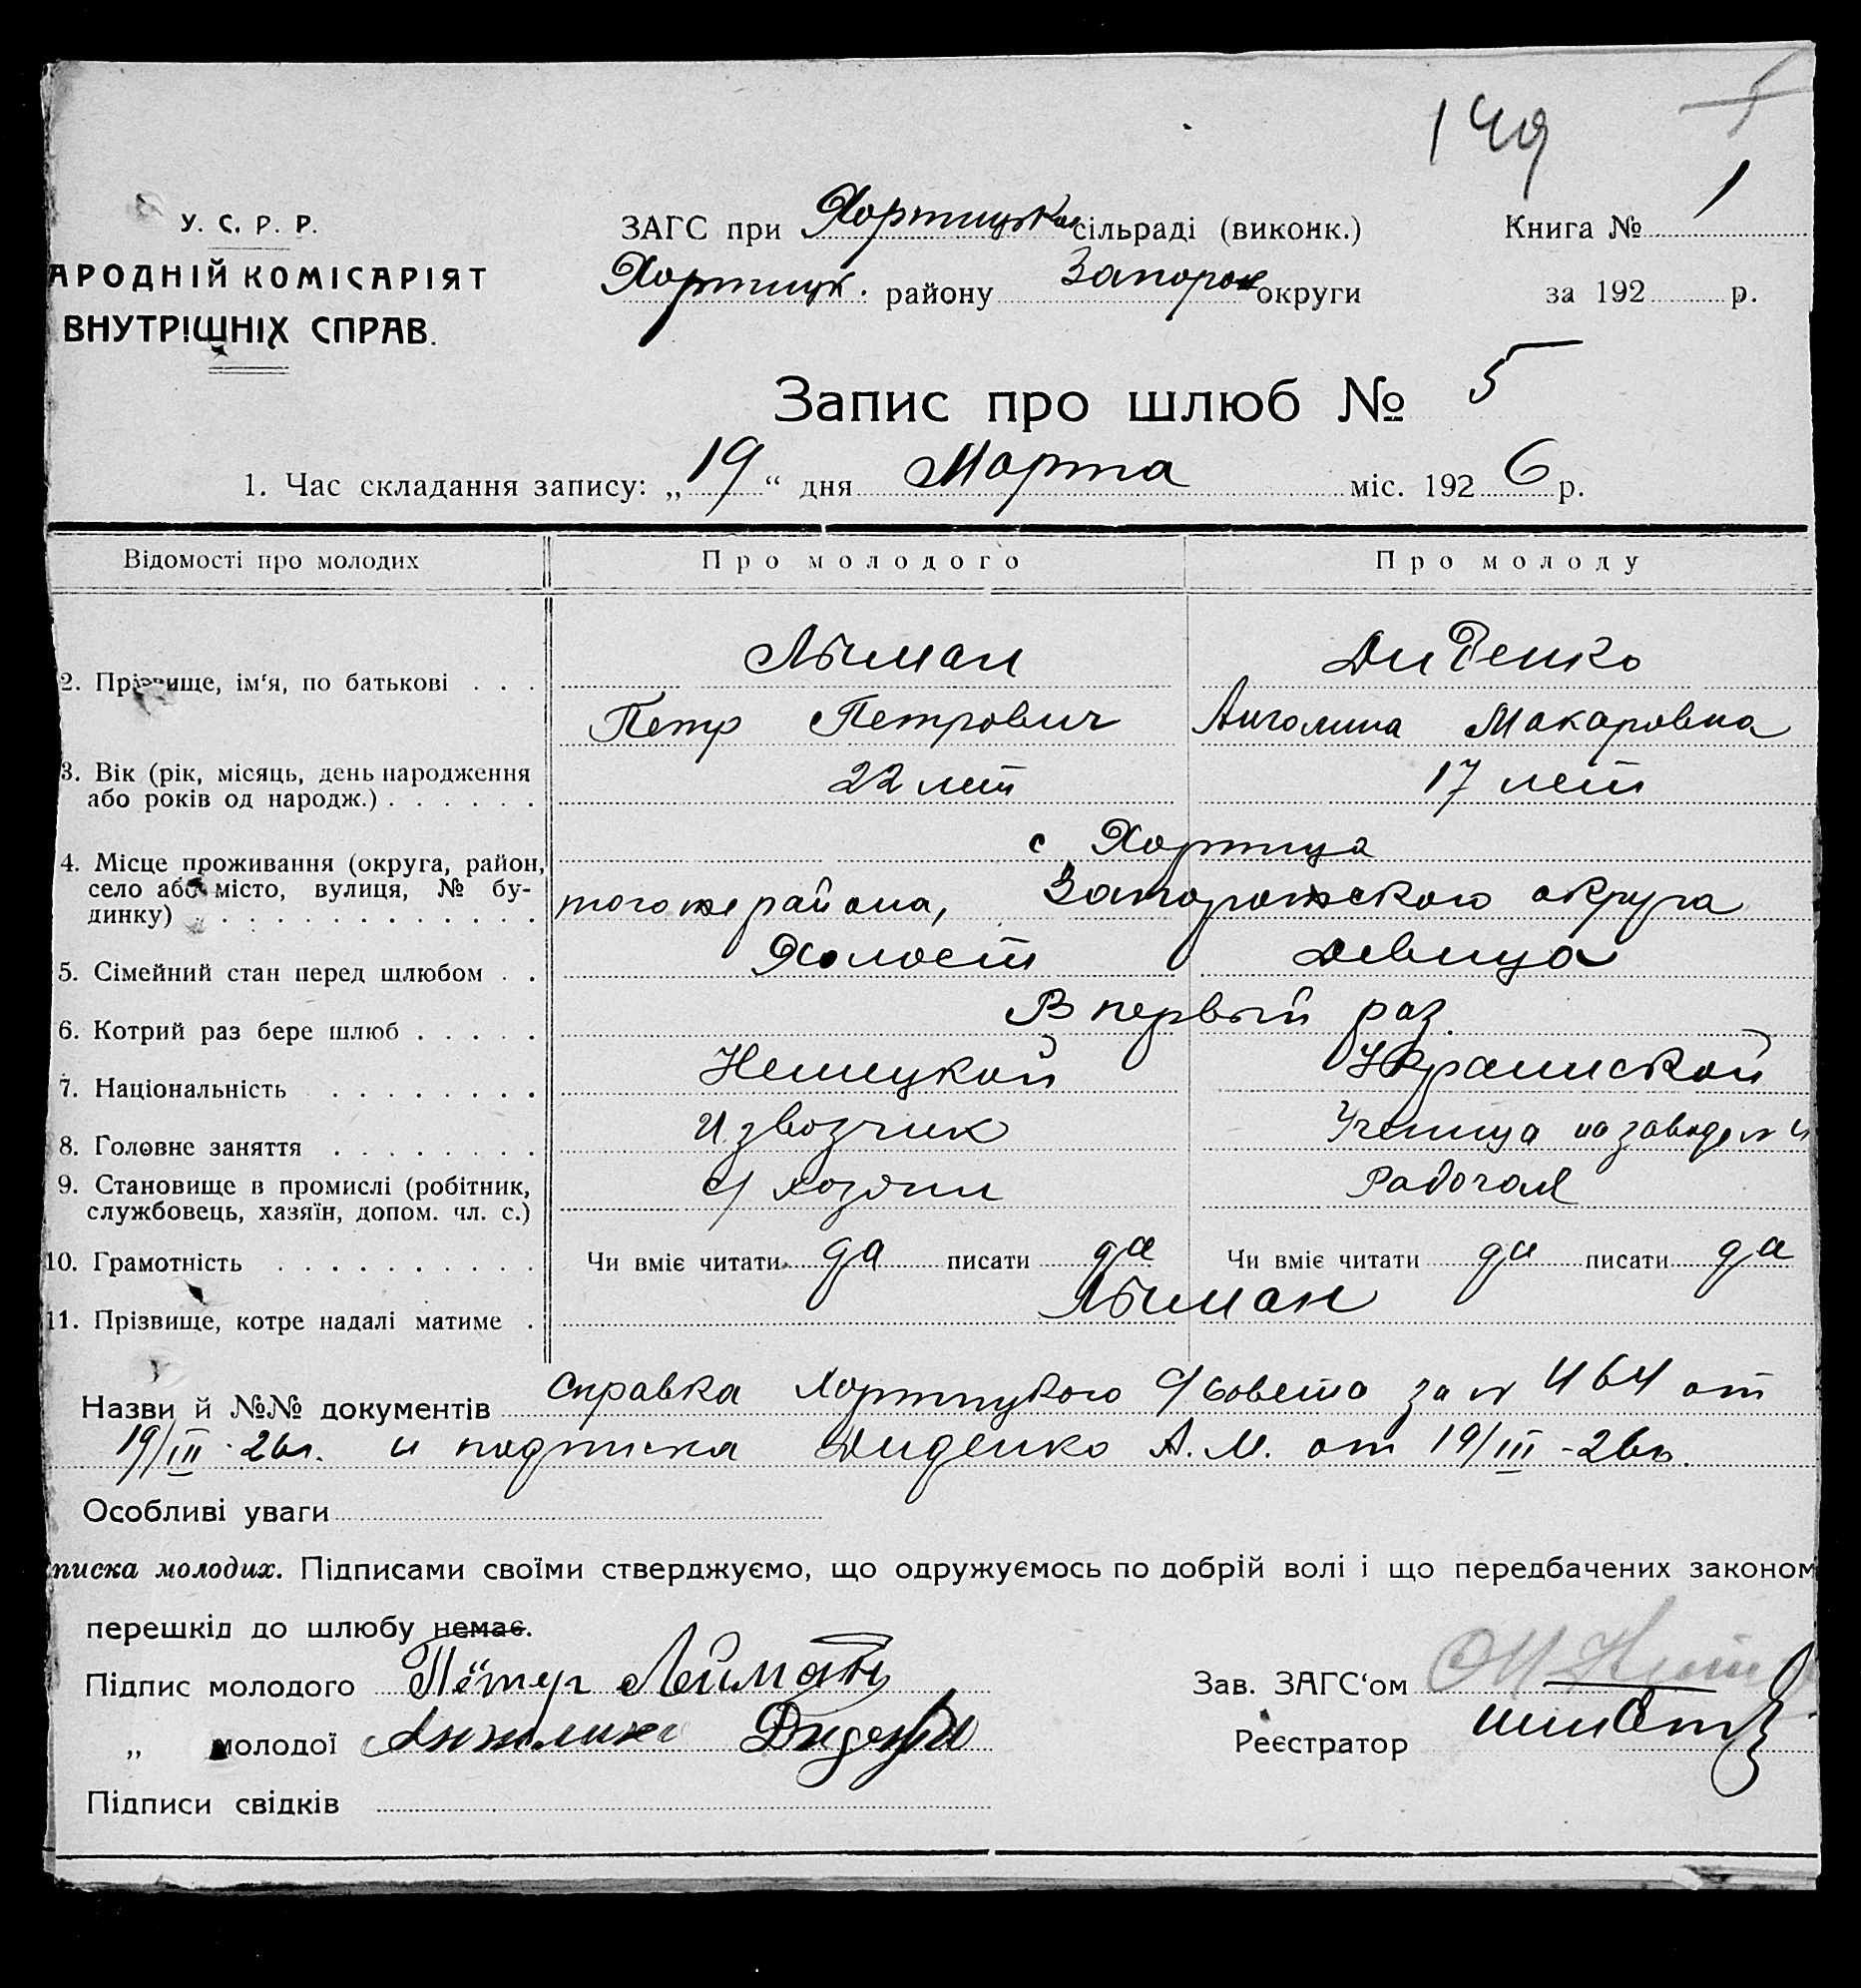 149
У. С. Р. Р.
АРОДНІЙ КОМІСАРІЯТ
ВНУТРІШНІХ СПРАВ.
ЗАГС при Хортицькой сільраді (виконк.)
Книга № 1
Хортицк. району Запорож округи
за 192 р.
Запис про шлюб № 5
1. Час складання запису: „19“ дня Марта міс. 1926 р.
Відомості про молодих Про молодого Про молоду
2. Прізвище, ім‘я, по батькові . . . Диденко
Петр Петрович Макаровна
3. Вік (рік, місяць, день народження
або років од народж.) . . . . . . 22 лет 17 лет
4. Місце проживання (округа, район, с Хортица
село або місто, вулиця, № бу-
динку) . . . . . . . . . . . . того же района, Запорожского округа
5. Сімейний стан перед шлюбом . . Холост Девица
6. Котрий раз бере шлюб . . . . . В первый раз.
7. Національність . . . . . . . . Немецкой Украинской
8. Головне заняття . . . . . . . . Извозчик Ученица на заводе № 4
9. Становище в промислі (робітник,
службовець, хазяїн, допом. чл. с.) хозяин Рабочая
10. Грамотність . . . . . . . . . . Чи вміє читати да писати да Чи вміє читати да писати да
11. Прізвище, котре надалі матиме .
Назви й №№ документів Справка Хортицкого с/совета за № 464 от
19/III-26г. и подписка Диденко А. М. от 19/III-26г.
Особливі уваги
писка молодих. Підписами своїми стверджуємо, що одружуємось по добрій волі і що передбачених законом
перешкід до шлюбу немає.
Підпис молодого Петер
Зав. ЗАГС‘ом
„ молодої Диденко
Реєстратор
Підписи свідків